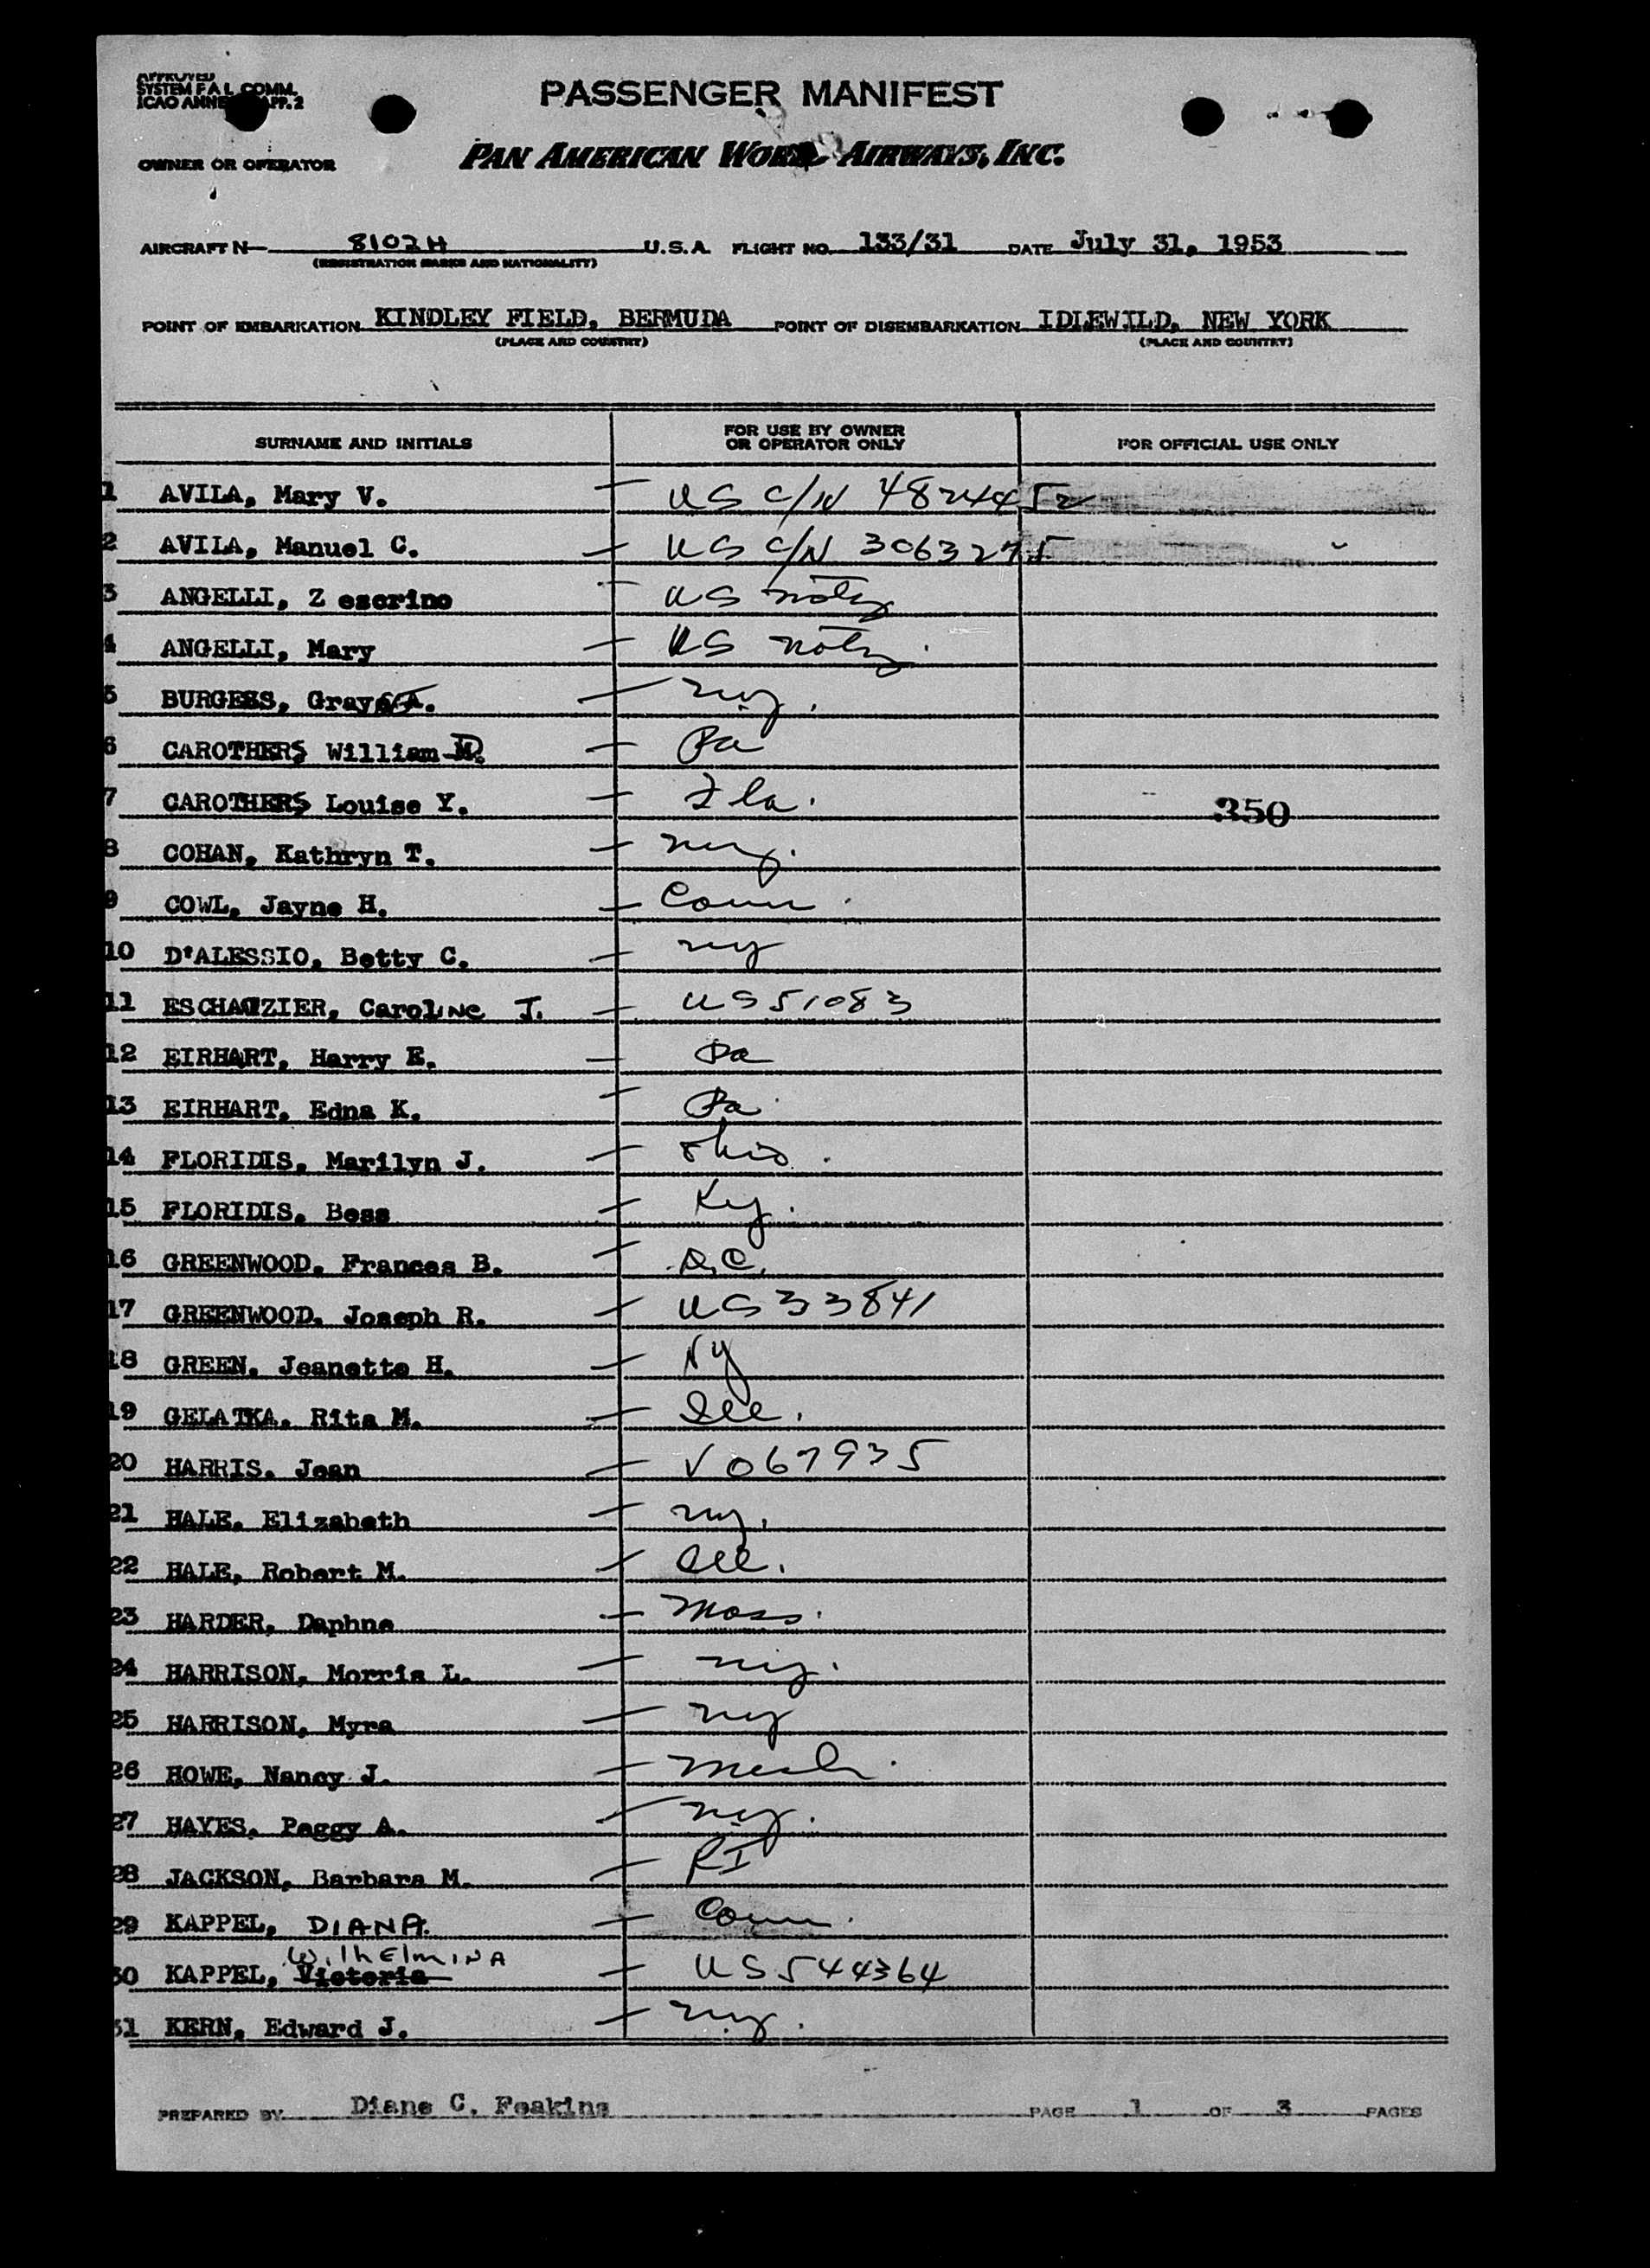 APPROVED
SYSTEM F A L COMM.
ICAO ANNE APP. 2
PASSENGER MANIFEST
OWNER OR OPERATOR PAN AMERICAN WORLD AIRWAYS, INC.
AIRCRAFT N 8102H U.S.A. FLIGHT NO. 133/31 DATE July 31, 1953
(REGISTRATION MARKS AND NATIONALITY)
POINT OF EMBARKATION KINDLEY FIELD, BERMUDA POINT OF DISEMBARKATION IDLEWILD, NEW YORK
(PLACE AND COUNTRY) (PLACE AND COUNTRY)
SURNAME AND INITIALS FOR USE BY OWNER OR OPERATOR ONLY FOR OFFICIAL USE ONLY
1 AVILA, Mary V. — US C/N 4824452
2 AVILA, Manuel C. — US C/N 3063275
3 ANGELLI, Z eserino — US natz
4 ANGELLI, Mary — US natz.
5 BURGESS, Gray A. — NY.
6 CAROTHERS William D. — Pa
7 CAROTHERS Louise Y. — Fla. 350
8 COHAN, Kathryn T. — NY.
9 COWL, Jayne H. — Conn.
10 D'ALESSIO, Betty C. — NY
11 ESCHAUZIER, Caroline J. — US 51083
12 EIRHART, Harry E. — Pa
13 EIRHART, Edna K. — Pa.
14 FLORIDIS, Marilyn J. — Ohio.
15 FLORIDIS, Bess — Ky.
16 GREENWOOD, Frances B. — D.C.
17 GREENWOOD, Joseph R. — US 33841
18 GREEN, Jeanette H. — NY
19 GELATKA, Rita M. — Ill.
20 HARRIS, Jean — V 067935
21 HALE, Elizabeth — NY.
22 HALE, Robert M. — Ill.
23 HARDER, Daphne — Mass.
24 HARRISON, Morris L. — NY.
25 HARRISON, Myra — NY
26 HOWE, Nancy J. — Mich.
27 HAYES, Peggy A. — NY.
28 JACKSON, Barbara M. — RI
29 KAPPEL, DIANA. — Conn.
WilhElmINA
30 KAPPEL, Victoria — US 544364
31 KERN, Edward J. — NY.
PREPARED BY Diane C. Feakins PAGE 1 OF 3 PAGES